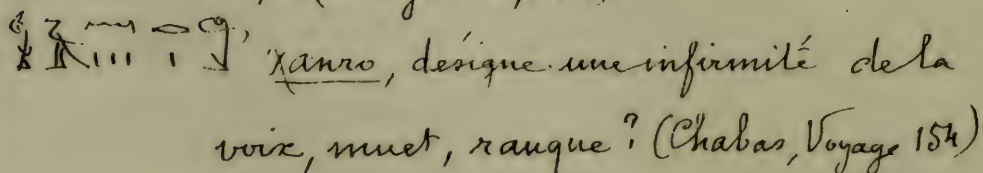 xanro, désigne une infirmité de la
voix, muet, rauque? (Chabas, Voyage 154)